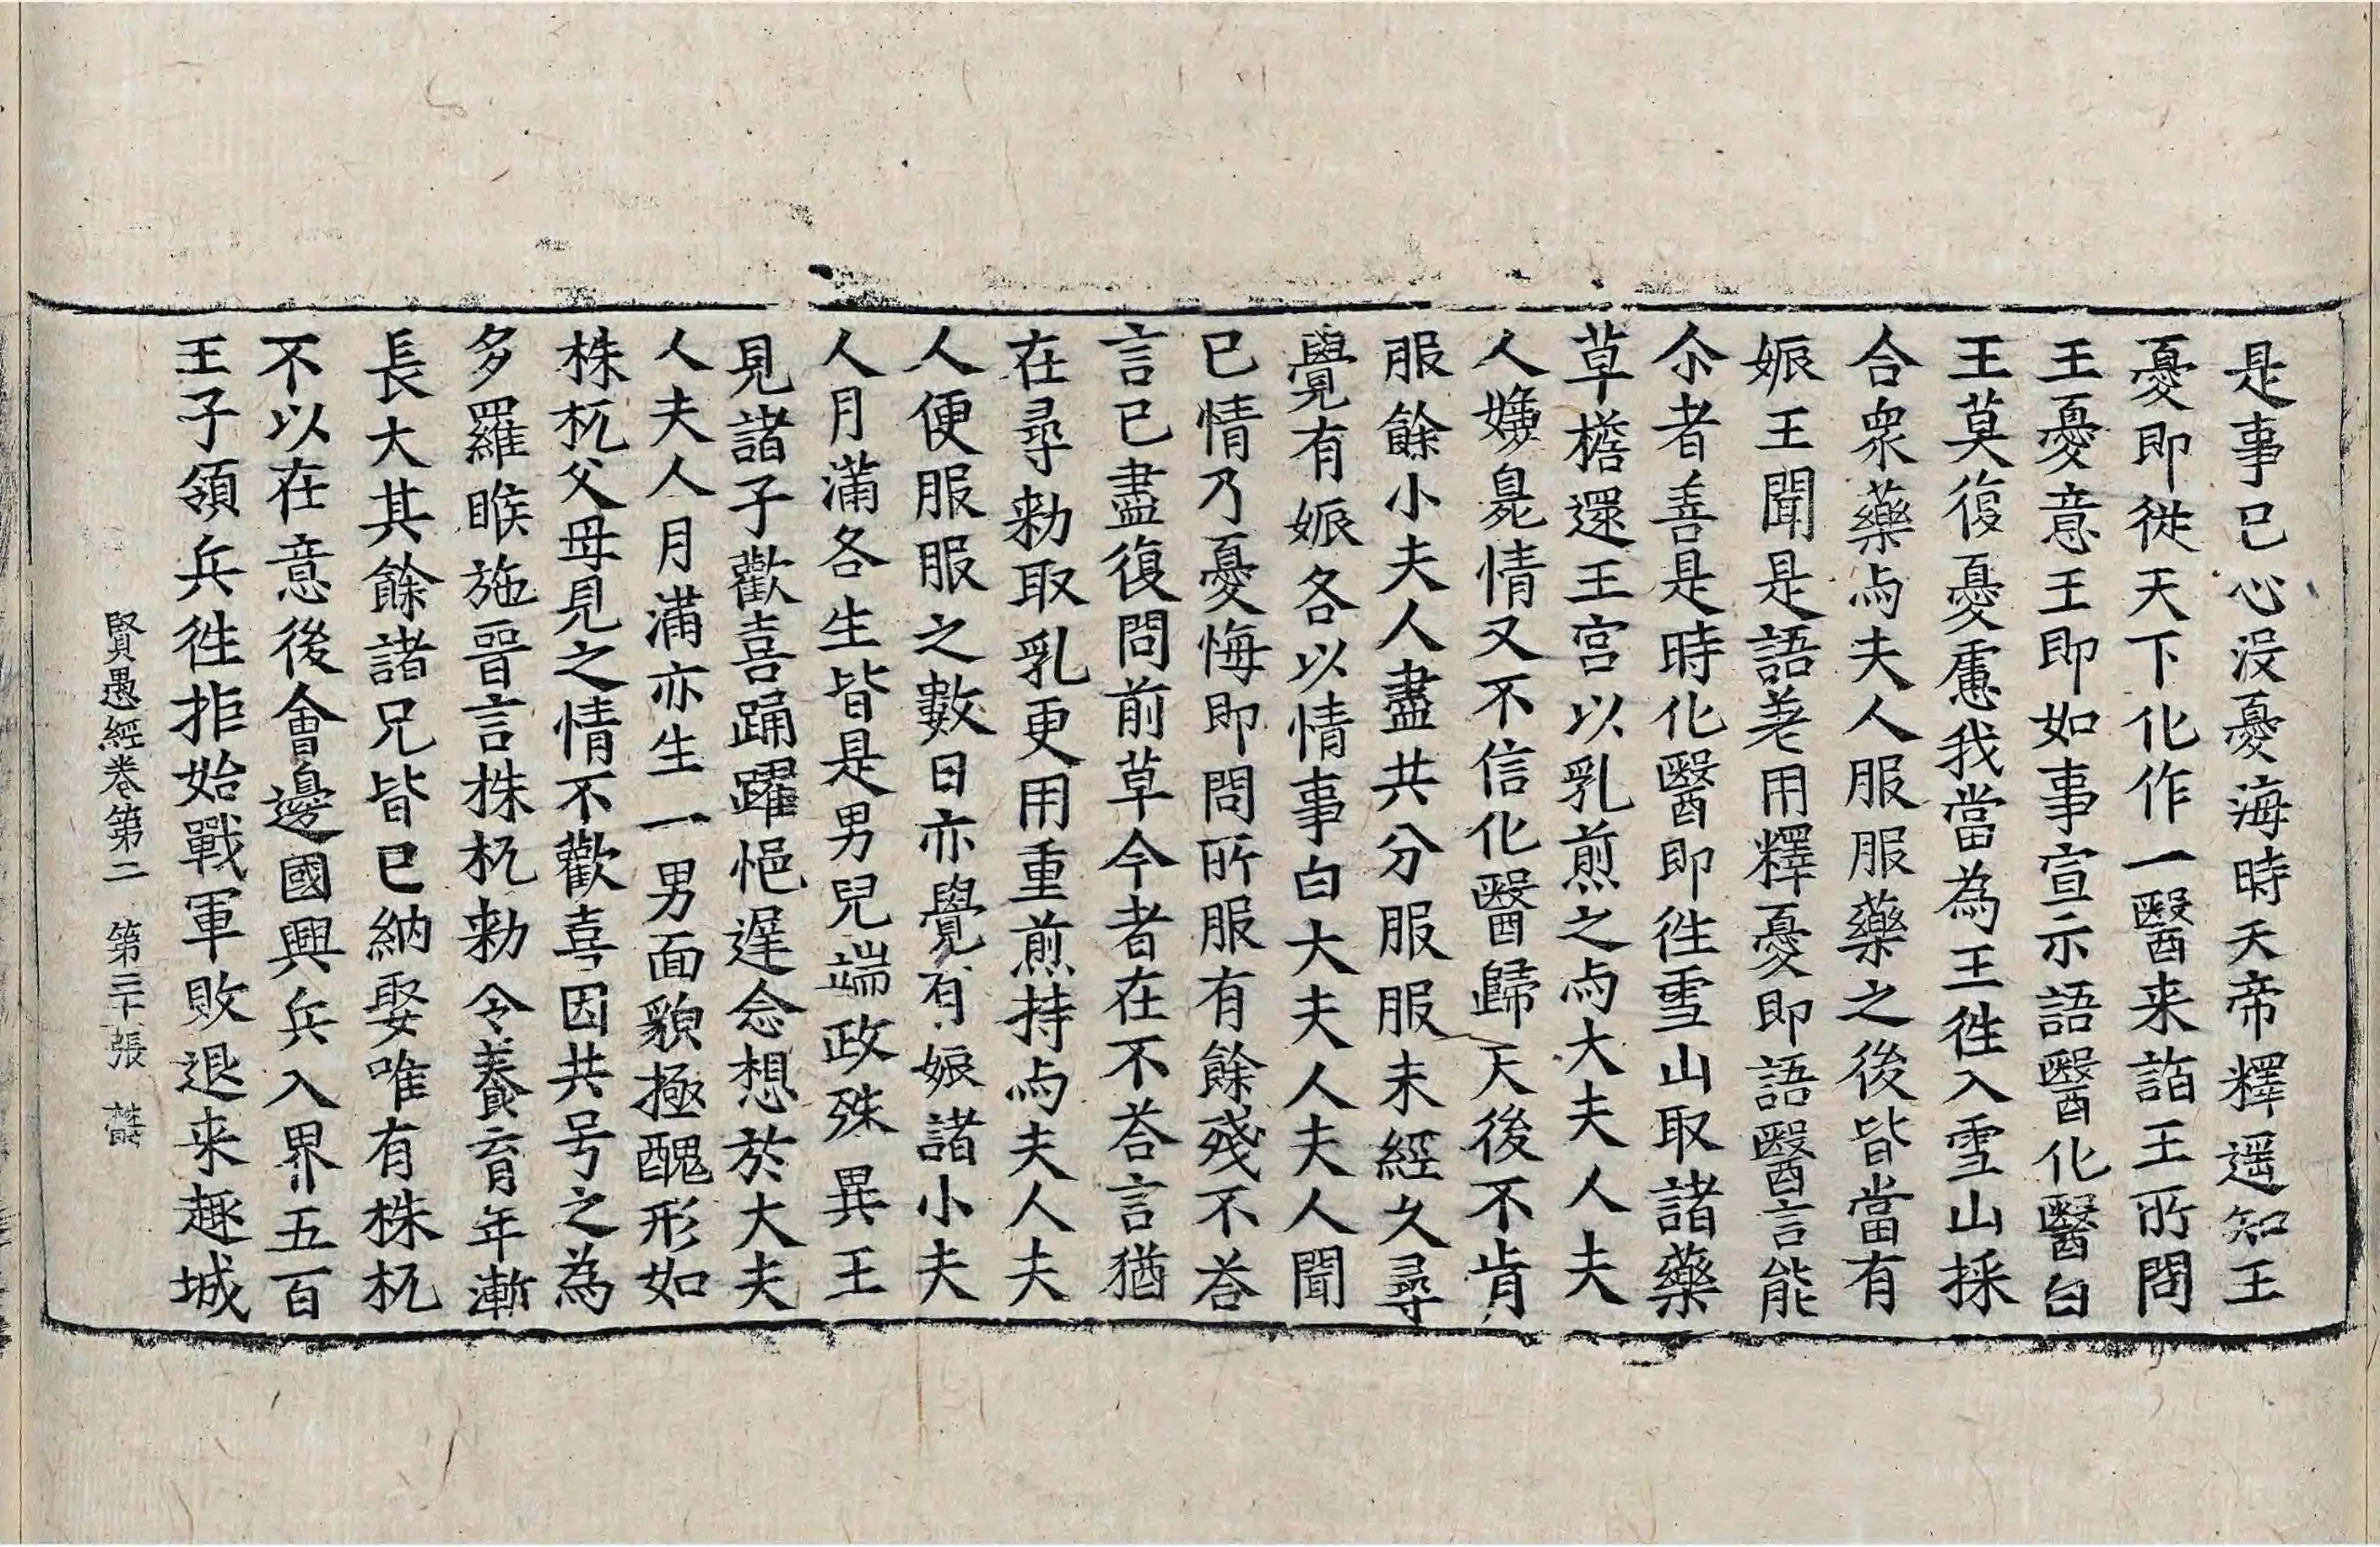 是事已心没憂海時天帝釋遥知王
憂即從天下化作一醫来詣王所問
王憂意王即如事宣示語醫化醫白
王莫復憂慮我當為王徃入雪山採
合衆藥与夫人服服藥之後皆當有
娠王聞是語差用釋憂即語醫言能
尒者善是時化醫即徃雪山取諸藥
草檐還王宮以乳煎之与大夫人夫
人嫌臭情又不信化醫歸天後不肯
服餘小夫人盡共分服服未經久尋
覺有娠各以情事白大夫人夫人聞
已情乃憂悔即問所服有餘殘不荅
言已盡復問前草今者在不荅言猶
在尋勑取乳更用重煎持与夫人夫
人便服服之數日亦覺有娠諸小夫
人月滿各生皆是男兒端政殊異王
見諸子歡喜踊躍悒遲念想於大夫
人夫人月滿亦生一男面貌極醜形如
株杌父母見之情不歡喜因共号之為
多羅睺施晉言株杌勑令養育年漸
長大其餘諸兄皆已納娶唯有株杌
不以在意後會邊國興兵入界五百
王子領兵徃拒始戰軍敗退来趣城
賢愚經卷第二 第三十張